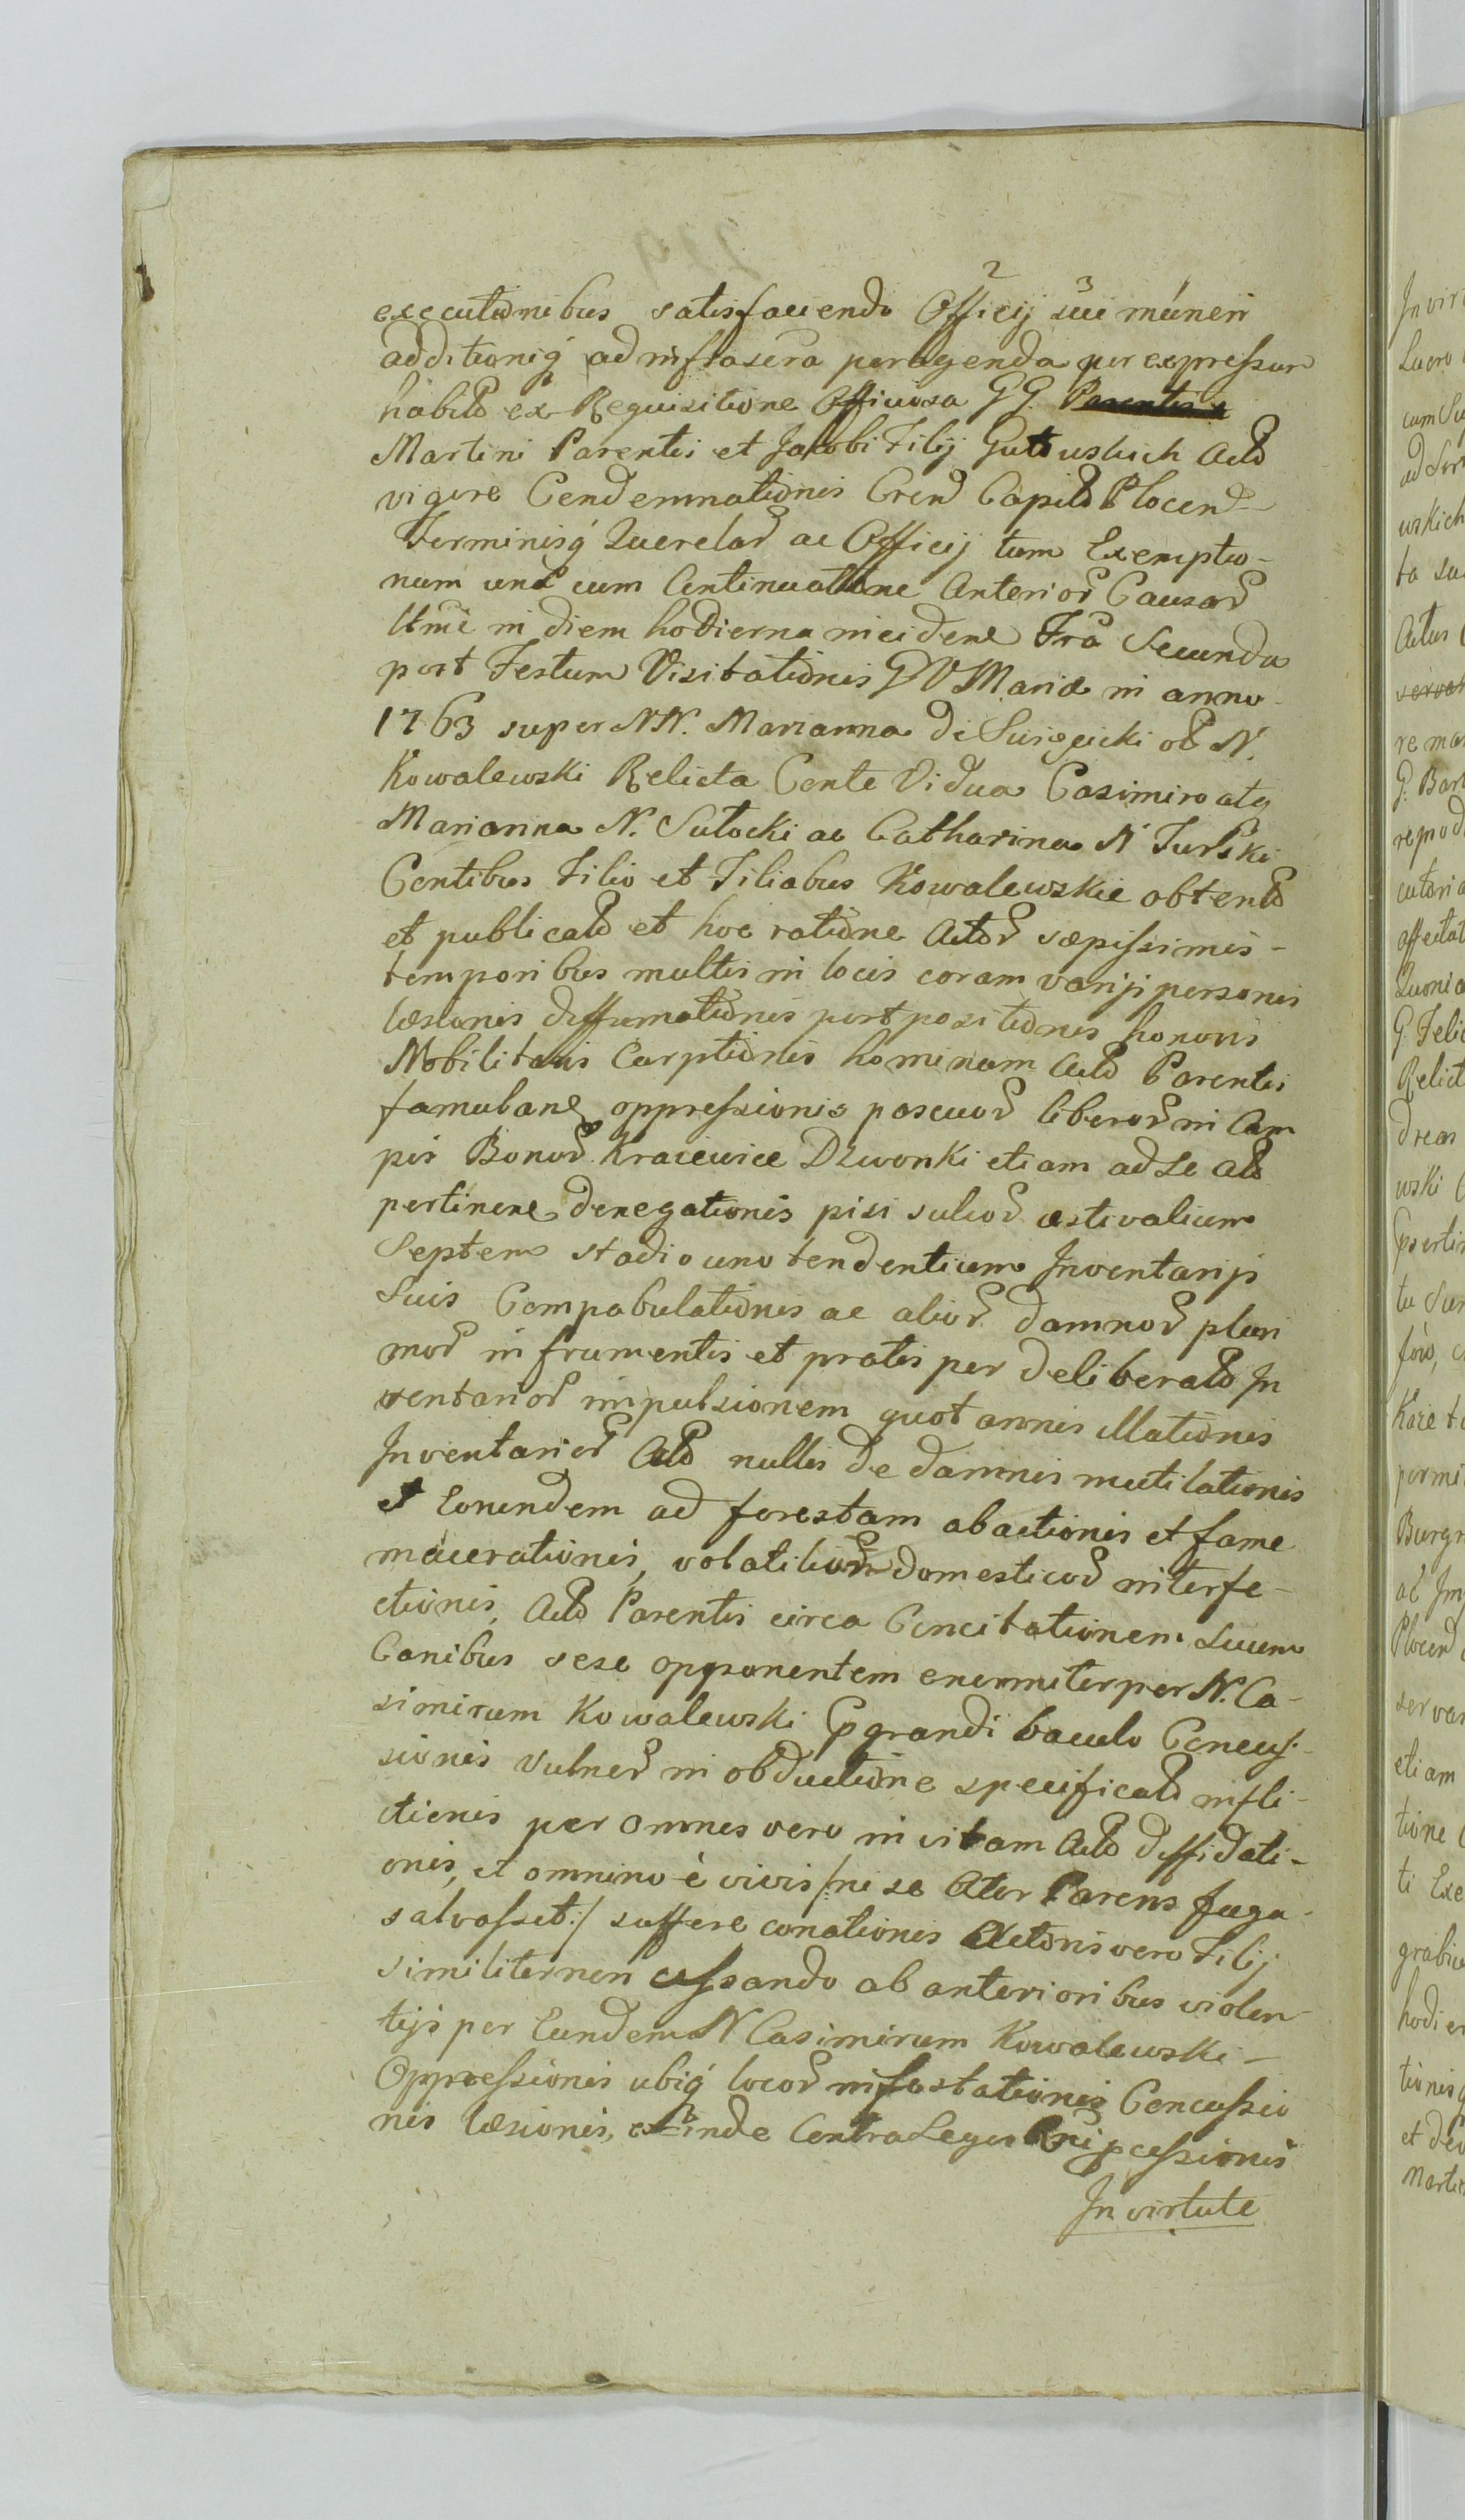 executionibus satisfaciendo Officij sui muneri
additioniq ad infrascra peragenda per expressum
habito ex Requisitione Officiosa GG.
Martini Parentis et Jacobi Filij Gutowskich Acto
vigore Condemnationis Cren Capito Plocen
Terminisq Querelar ac Officij tum Exemptio-
num una cum Continuatione Anterior Causar
in diem hodierna inciden Fra Secunda
post Festum Visitationis BV Mariæ in anno
1763 super NN. Marianna de olb N.
Kowalewski Relicta Conte Vidua Casimiro atq
Marianna N. Sutocki ac Catharina N Turski
Contibus Filio et Filiabus Kowalewskie obtento
et publicato et hoc ratione Actor sæpissimis-
temporibus multis in locis coram varijs personis
læsionis diffamationis postpositionis honoris
Nobilitaris Carptionis hominum Acto Parentis
famulan oppressionis pascuor liberor in Cam
pis Bonor Kraiewice Dzwonki etiam ad se Acto
pertinen denegationis pisi sulcor æstivalium
Septem stadio uno tendentium Inventarijs
Suis Compabulationis ac alior damnor pluri
mor in frumentis et pratis per deliberato In
ventarior impulsionem quot annis illationis
Inventarior Acto nullis de damnis mutilationis
et Eorundem ad forestam abactionis et fame
macerationis, volatilium domesticor interfe-
ctionis, Acto Parentis circa Concitationem suum
Canibus sese opponentem enormiter per N. Ca-
simirum Kowalewski grandi baculo Concus-
sionis Vulner in obductione specificato infli-
ctionis per omnes vero in vitam Acto diffidati-
onis, et omnino è vivis /:ni se Ator Parens fuga
salvasset:/ suffere conationis Actoris vero Filij
similiter non cessando ab anterioribus violen-
tijs per Eundem N Casimirum Kowalewski-
Oppressionis ubiq locor infestationis Concussio
nis læsionis, et inde Contra Leges Rni pcessionis
In virtute